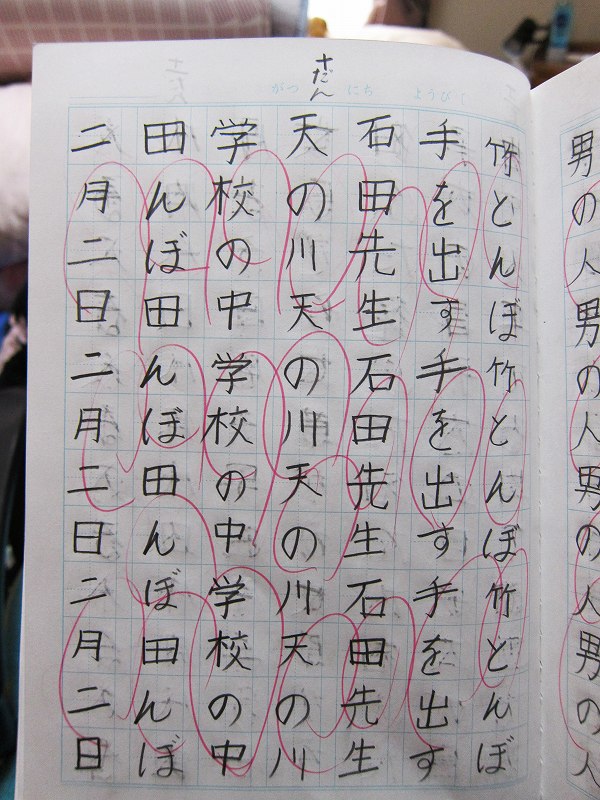 男の人男の人男の人男の人
十だん
がつ にち ようび
竹とんぼ竹とんぼ竹とんぼ
手を出す手を出す手を出す
石田先生石田先生石田先生
天の川天の川天の川天の川
学校の中学校の中学校の中
田んぼ田んぼ田んぼ田んぼ
二月二日二月二日二月二日